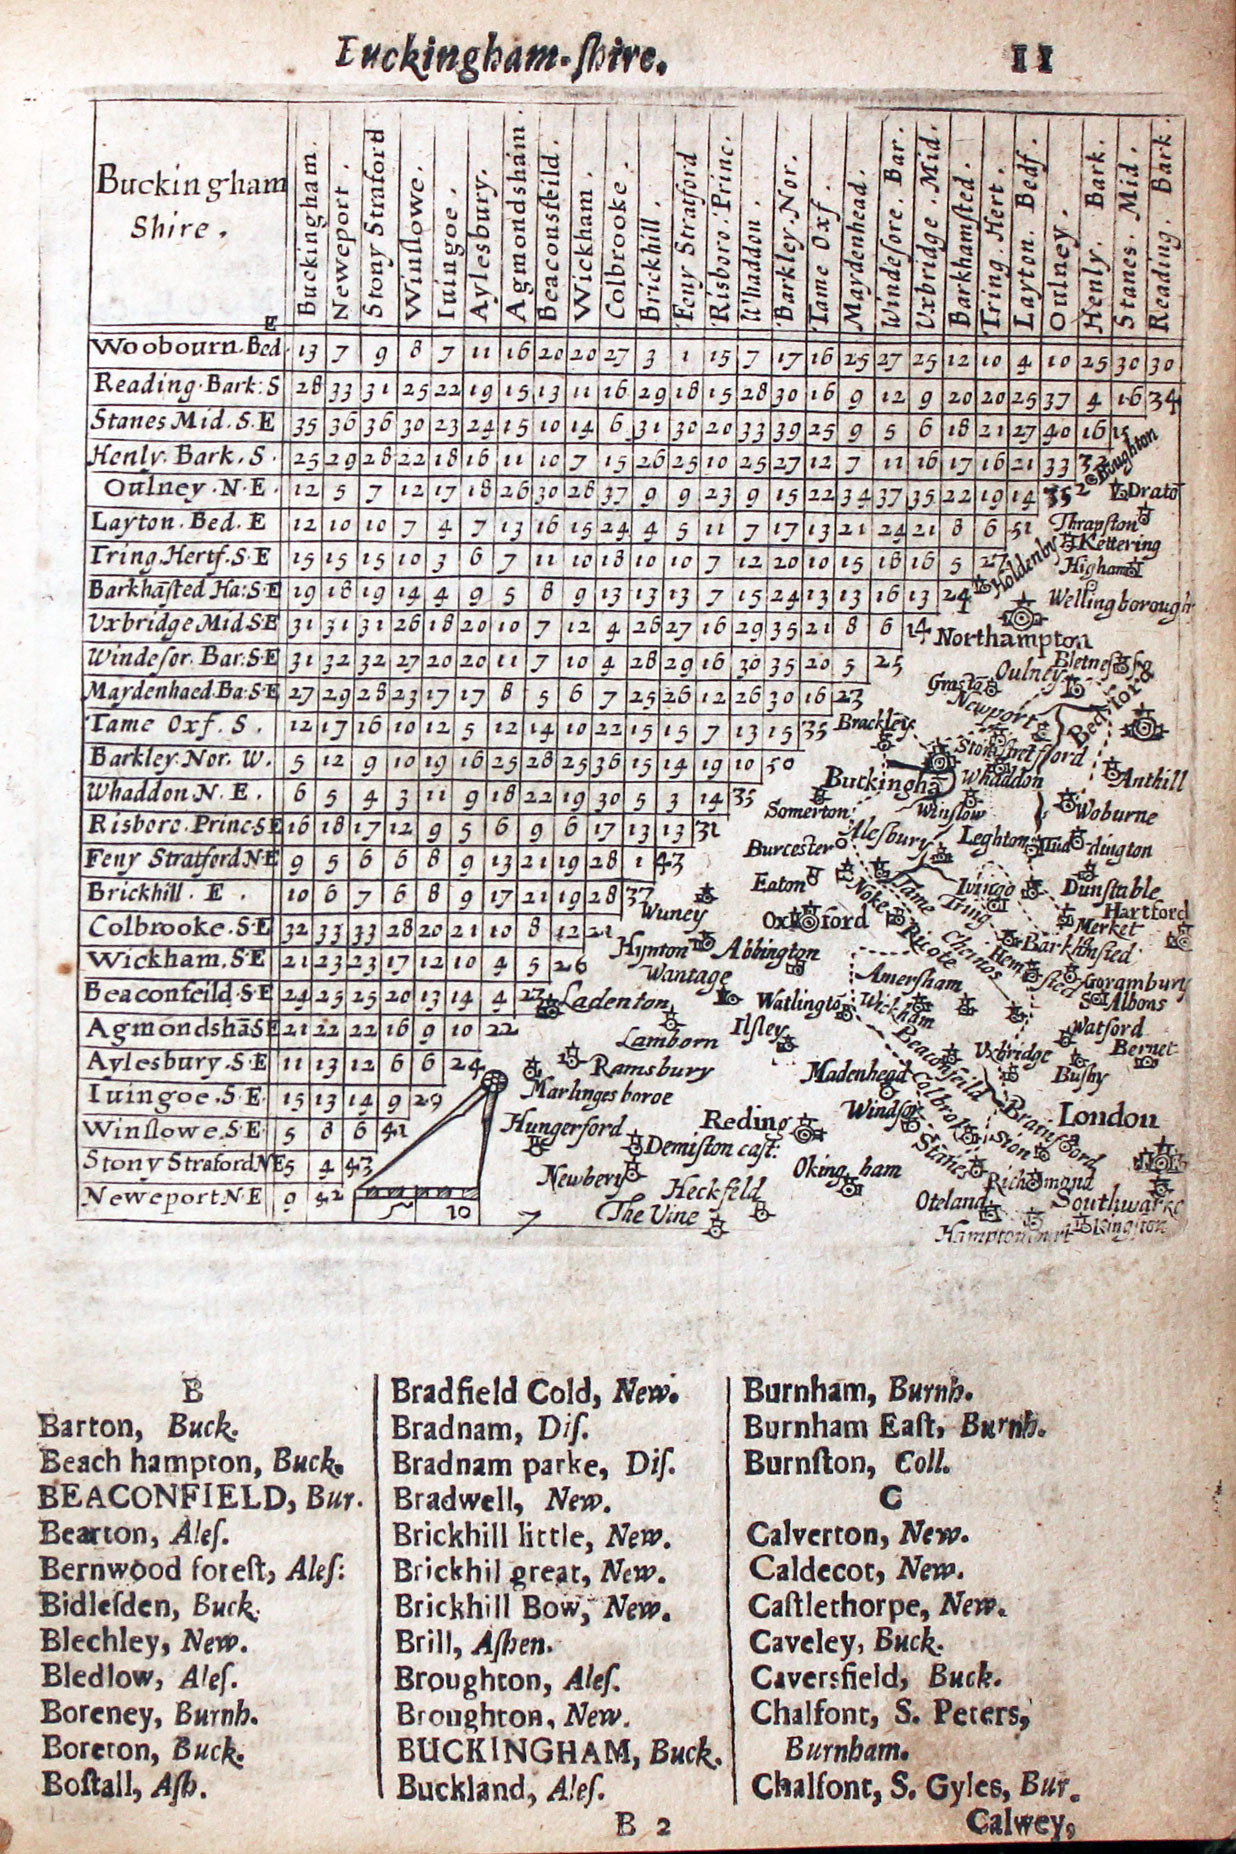 Euckingham-ſhire. 11
Buckingham
Shire.
Buckingham.
Neweport.
Stony Straford
Winſlowe.
Iuingoe.
Aylesbury.
Agmondsham.
Beaconsfeild.
Wickham.
Colbrooke.
Brickhill.
Feny Stratford
Risboro: Princ.
Whaddon.
Barkley. Nor.
Tame Oxf.
Maydenhead.
Windeſore. Bar.
Vxbridge. Mid.
Barkhamſted.
Tring. Hert.
Layton. Bedf.
Oulney.
Henly. Bark.
Stanes. Mid.
Reading. Bark.
E
Woobourn. Bed. 13 7 9 8 7 11 16 20 20 27 3 1 15 7 17 16 25 27 25 12 10 4 10 25 30 30
Reading. Bark: S 28 33 31 25 22 19 15 13 11 16 29 18 15 28 30 16 9 12 9 20 20 25 37 4 16 34
Stanes Mid. S. E 35 36 36 30 23 24 15 10 14 6 31 30 20 33 39 25 9 5 6 18 21 27 40 16 15
Henly. Bark. S. 25 29 28 22 18 16 11 10 7 15 26 25 10 25 27 12 7 11 16 17 16 21 33 32
Oulney. N. E. 12 5 7 12 17 18 26 30 28 37 9 9 23 9 15 22 34 37 35 22 19 14 352
Layton. Bed. E 12 10 10 7 4 7 13 16 15 24 4 5 11 7 17 13 21 24 21 8 6 51
Tring. Hertf. S. E 15 15 15 10 3 6 7 11 10 18 10 10 7 12 20 10 15 18 16 5 27
Barkhāſted Ha: S. E 19 18 19 14 4 9 5 8 9 13 13 13 7 15 24 13 13 16 13 24
Vxbridge Mid S. E 31 31 31 26 18 20 10 7 12 4 26 27 16 29 35 21 8 6 14
Windeſor. Bar: S. E 31 32 32 27 20 20 11 7 10 4 28 29 16 30 35 20 5 25
Maydenhaed. Ba: S. E 27 29 28 23 17 17 8 5 6 7 25 26 12 26 30 16 23
Tame Oxf. S. 12 17 16 10 12 5 12 14 10 22 15 15 7 13 15 35
Barkley. Nor. W. 5 12 9 10 19 16 25 28 25 36 15 14 19 10 50
Whaddon. N. E. 6 5 4 3 11 9 18 22 19 30 5 3 14 35
Risboro. Princ S E 16 18 17 12 9 5 6 9 6 17 13 13 31
Feny Stratferd N. E 9 5 6 6 8 9 13 21 19 28 1 43
Brickhill. E. 10 6 7 6 8 9 17 21 19 28 37
Colbrooke. S. E 32 33 33 28 20 21 10 8 12 21
Wickham. S. E 21 23 23 17 12 10 4 5 26
Beaconfeild. S. E 24 25 25 20 13 14 4 27
Agmondshā S E 21 22 22 16 9 10 22
Aylesbury. S. E 11 13 12 6 6 24
Iuingoe. S. E 15 13 14 9 29
Winſlowe. S. E 5 8 6 41
Stony Straford N E 5 4 43
Neweport N. E 9 42
10
Boughton
Drato
Thrapſton
Kettering
Holdenby
Higham
Wellingborough
Northampton
Oulney
Grafto
Newport
Bedford
Brackley
Stony Stretfford
Whaddon
Buckinghā
Anthill
Somerton
Winſlow
Woburne
Burceſter
Aleſbury
Leghton
Tud dington
Eaton
Noke
Tame
Iuingo
Tring
Dunſtable
Hartford
Merket
Wuney
Oxford
Ricote
Barkhmſted
Hynton
Abbington
Hemſted
Wantage
Amerſham
Gorambury
S. Albons
Ladenton
Watlingto
Wickham
Lamborn
Ilſley
Watford
Bernet
Beaconfeild
Vxbridge
Ramsbury
Madenhead
Buſhy
Marlinges boroe
Colbrok
Windſor
Brainford
London
Hungerford
Reding
Demiſton caſt:
Stanes
Sion
Newbery
Oking ham
Richmond
Heckfeld
Oteland
Southwarke
The Vine
Hamptoncourt
Kingſton
B
Barton, Buck.
Beach hampton, Buck.
BEACONFIELD, Bur.
Bearton, Aleſ.
Bernwood foreſt, Aleſ:
Bidleſden, Buck.
Blechley, New.
Bledlow, Aleſ.
Boreney, Burnh.
Boreton, Buck.
Boſtall, Aſh.
Bradfield Cold, New.
Bradnam, Diſ.
Bradnam parke, Diſ.
Bradwell, New.
Brickhill little, New.
Brickhil great, New.
Brickhill Bow, New.
Brill, Aſhen.
Broughton, Aleſ.
Broughton, New.
BUCKINGHAM, Buck.
Buckland, Aleſ.
Burnham, Burnh.
Burnham Eaſt, Burnh.
Burnſton, Coll.
C
Calverton, New.
Caldecot, New.
Caſtlethorpe, New.
Caveley, Buck.
Caversfield, Buck.
Chalfont, S. Peters,
Burnham.
Chalfont, S. Gyles, Bur.
B 2
Calwey,